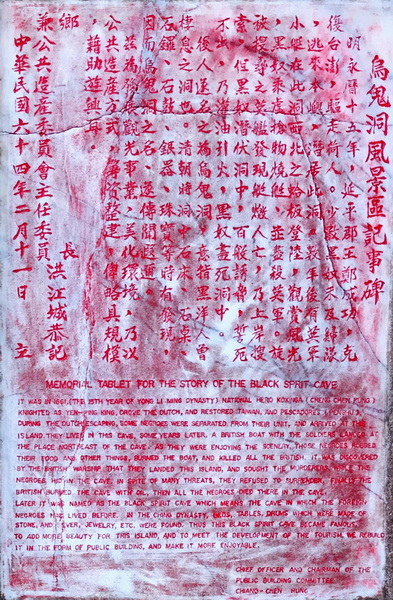 烏鬼洞風景區記事碑
明永曆十五年，延平郡王鄭成功，克
復台澎，
逃來本嶼，潛居此洞，數年後有英軍
小艇在此洞西北之蛤板登陸，觀賞風光
被黑奴乘虛搶物燒艇，並盡殺英軍，
搜靜之英艦發現艇燬人亡，乃上岸搜
索，但黑奴潛伏洞中，百般誘
不出，乃灌油引火，黑奴盡死洞中，
後人遂名之為烏鬼洞，意指黑洋人曾
棲息之洞也。清朝時洞中石床、石桌
石鐘、石鼓、銀器、珠寶等時有發現，
因而烏鬼洞之名，遂傳聞遐邇。
茲為發展觀光事業，美化環境，乃以
公共造產方式，籌資整建，俾略具規模
，藉助遊興耳。
鄉長 洪江城恭記
兼公共造產委員會主任委員
中華民國六十四年二月十一日 立
MEMORIAL TABLET FOR THE STORY OF THE BLACK SPRIT CAVE
IT WAS IN 1661, (THE 15TH YEAR OF YONG LI MING DYNASTY) NATIONAL HERO KOXINGA ( CHENG CHEN KUNG )
KNIGHTED AS YEN-PING-KING, DROVE THE DUTCH, AND RESTORED TAIWAN, AND PESCADORES
DURING THE DUTCH ESCAPING, SOME NEGROES WERE SEPARATED FROM THEIR UNIT, AND ARRIVED AT THIS
ISLAND THEY LIVED IN THIS CAVE, SOME YEARS LATER, A BRITISH BOAT WITH THE SOLDIERS LANDED AT
THE PLACE NORTHEAST OF THE CAVE. AS THEY WERE ENJOYING THE SCENERY, THOSE NEGROES ROBBED
THEIR FOOD AND OTHER THINGS, BURNED THE BOAT AND KILLED ALL THE BRITISH. IT WAS DISCOVERED
BY THE BRITISH WARSHIP THAT THEY LANDED THIS ISLAND, AND SOUGHT THE MURDERERS, WHILE THE
NEGROES HID IN THE CAVE, IN SPITE OF MANY THREATS, THEY REFUSED TO SURRENDER, FINALLY THE
BRITISH BURNED THE CAVE WITH OIL, THEN ALL THE NEGROES DIED THERE IN THE CAVE.
LATER IT WAS NAMED AS THE BLACK SPIRIT CAVE WHICH MEANS THE CAVE IN WHICH THE FOREIGN
NEGROES HAD LIVED BEFORE. IN THE CHING DYNASTY, BEDS, TABLES, DRUMS WHICH WERE MADE OF
STONE, AND SILVER, JEWELRY, ETC. WERE FOUND. THUS THIS BLACK SPIRIT CAVE BECAME FAMOUS.
TO ADD MORE BEAUTY FOR THIS ISLAND, AND TO MEET THE DEVELOPMENT OF THE TOURISM, WE REBUILD
IT IN THE FORM OF PUBLIC BUILDING, AND MAKE IT MORE ENJOYABLE.
CHIEF OFFICER AND CHAIRMAN OF THE
PUBLIC BUILDING COMMITTEE
CHIANG-CHEN HUNG